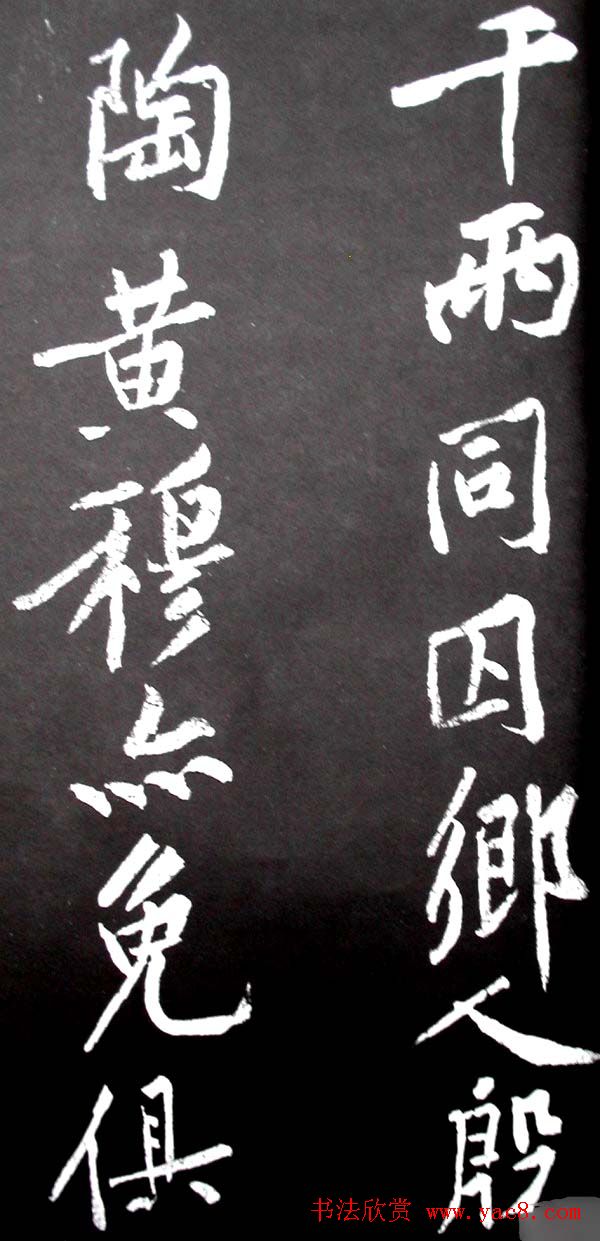 千兩同囚鄉人殷
陶黃穆亦免俱
书法欣赏 www.yac8.com